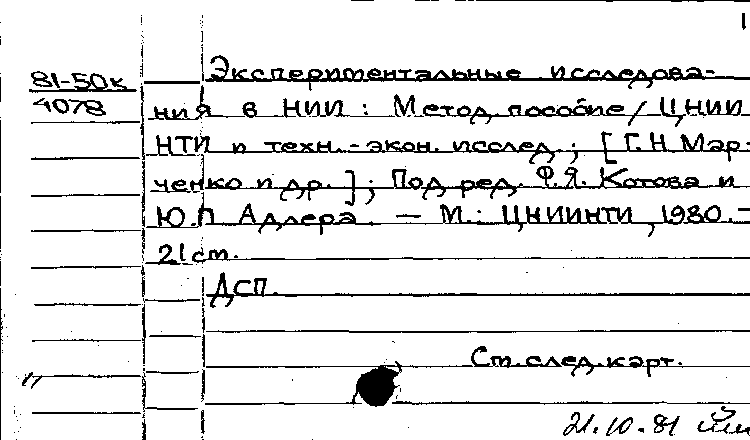 1
81-50к
4078
Экспериментальные исследова-
ния в НИИ : Метод. пособие / ЦНИИ
НТИ и техн.-экон. исслед. ; [Г.Н Мар-
ченко и др. ] ; Под ред. Ф.Я. Котова и
Ю.П Адлера. — М. : ЦНИИНТИ, 1980. –
21 см.
ДСП.
См. след. карт.
21.10.81